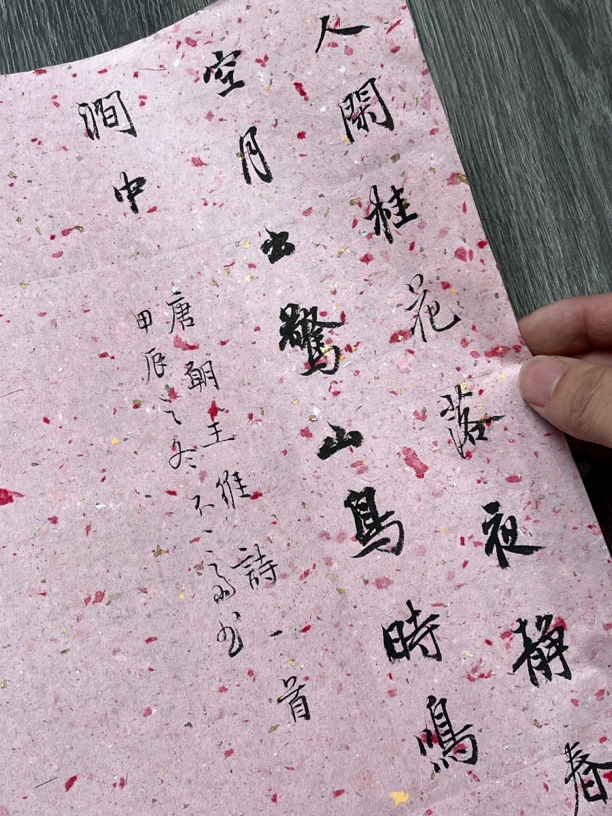 人閑桂花落夜静春
空月出驚山鳥時鳴
澗中
唐朝王維詩一首
甲辰之冬